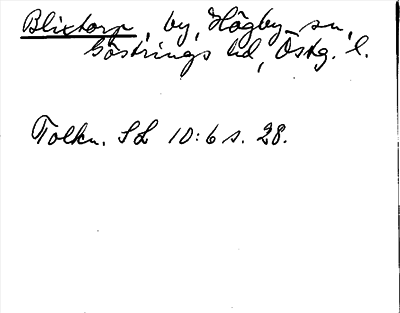 Blixtorp, by, Högby sn,
Göstrings hd, Östg. l.
Tolkn. SL 10:6 s. 28.